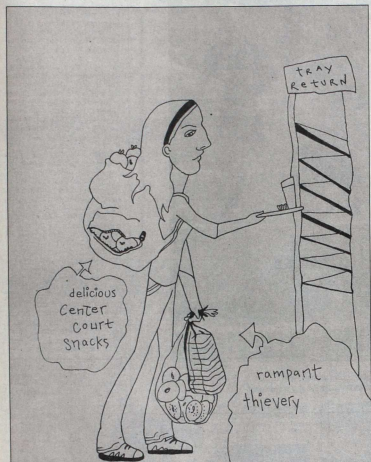 tRAY
RetURN
delicious
Center
Court
Snacks
rampant
thievery